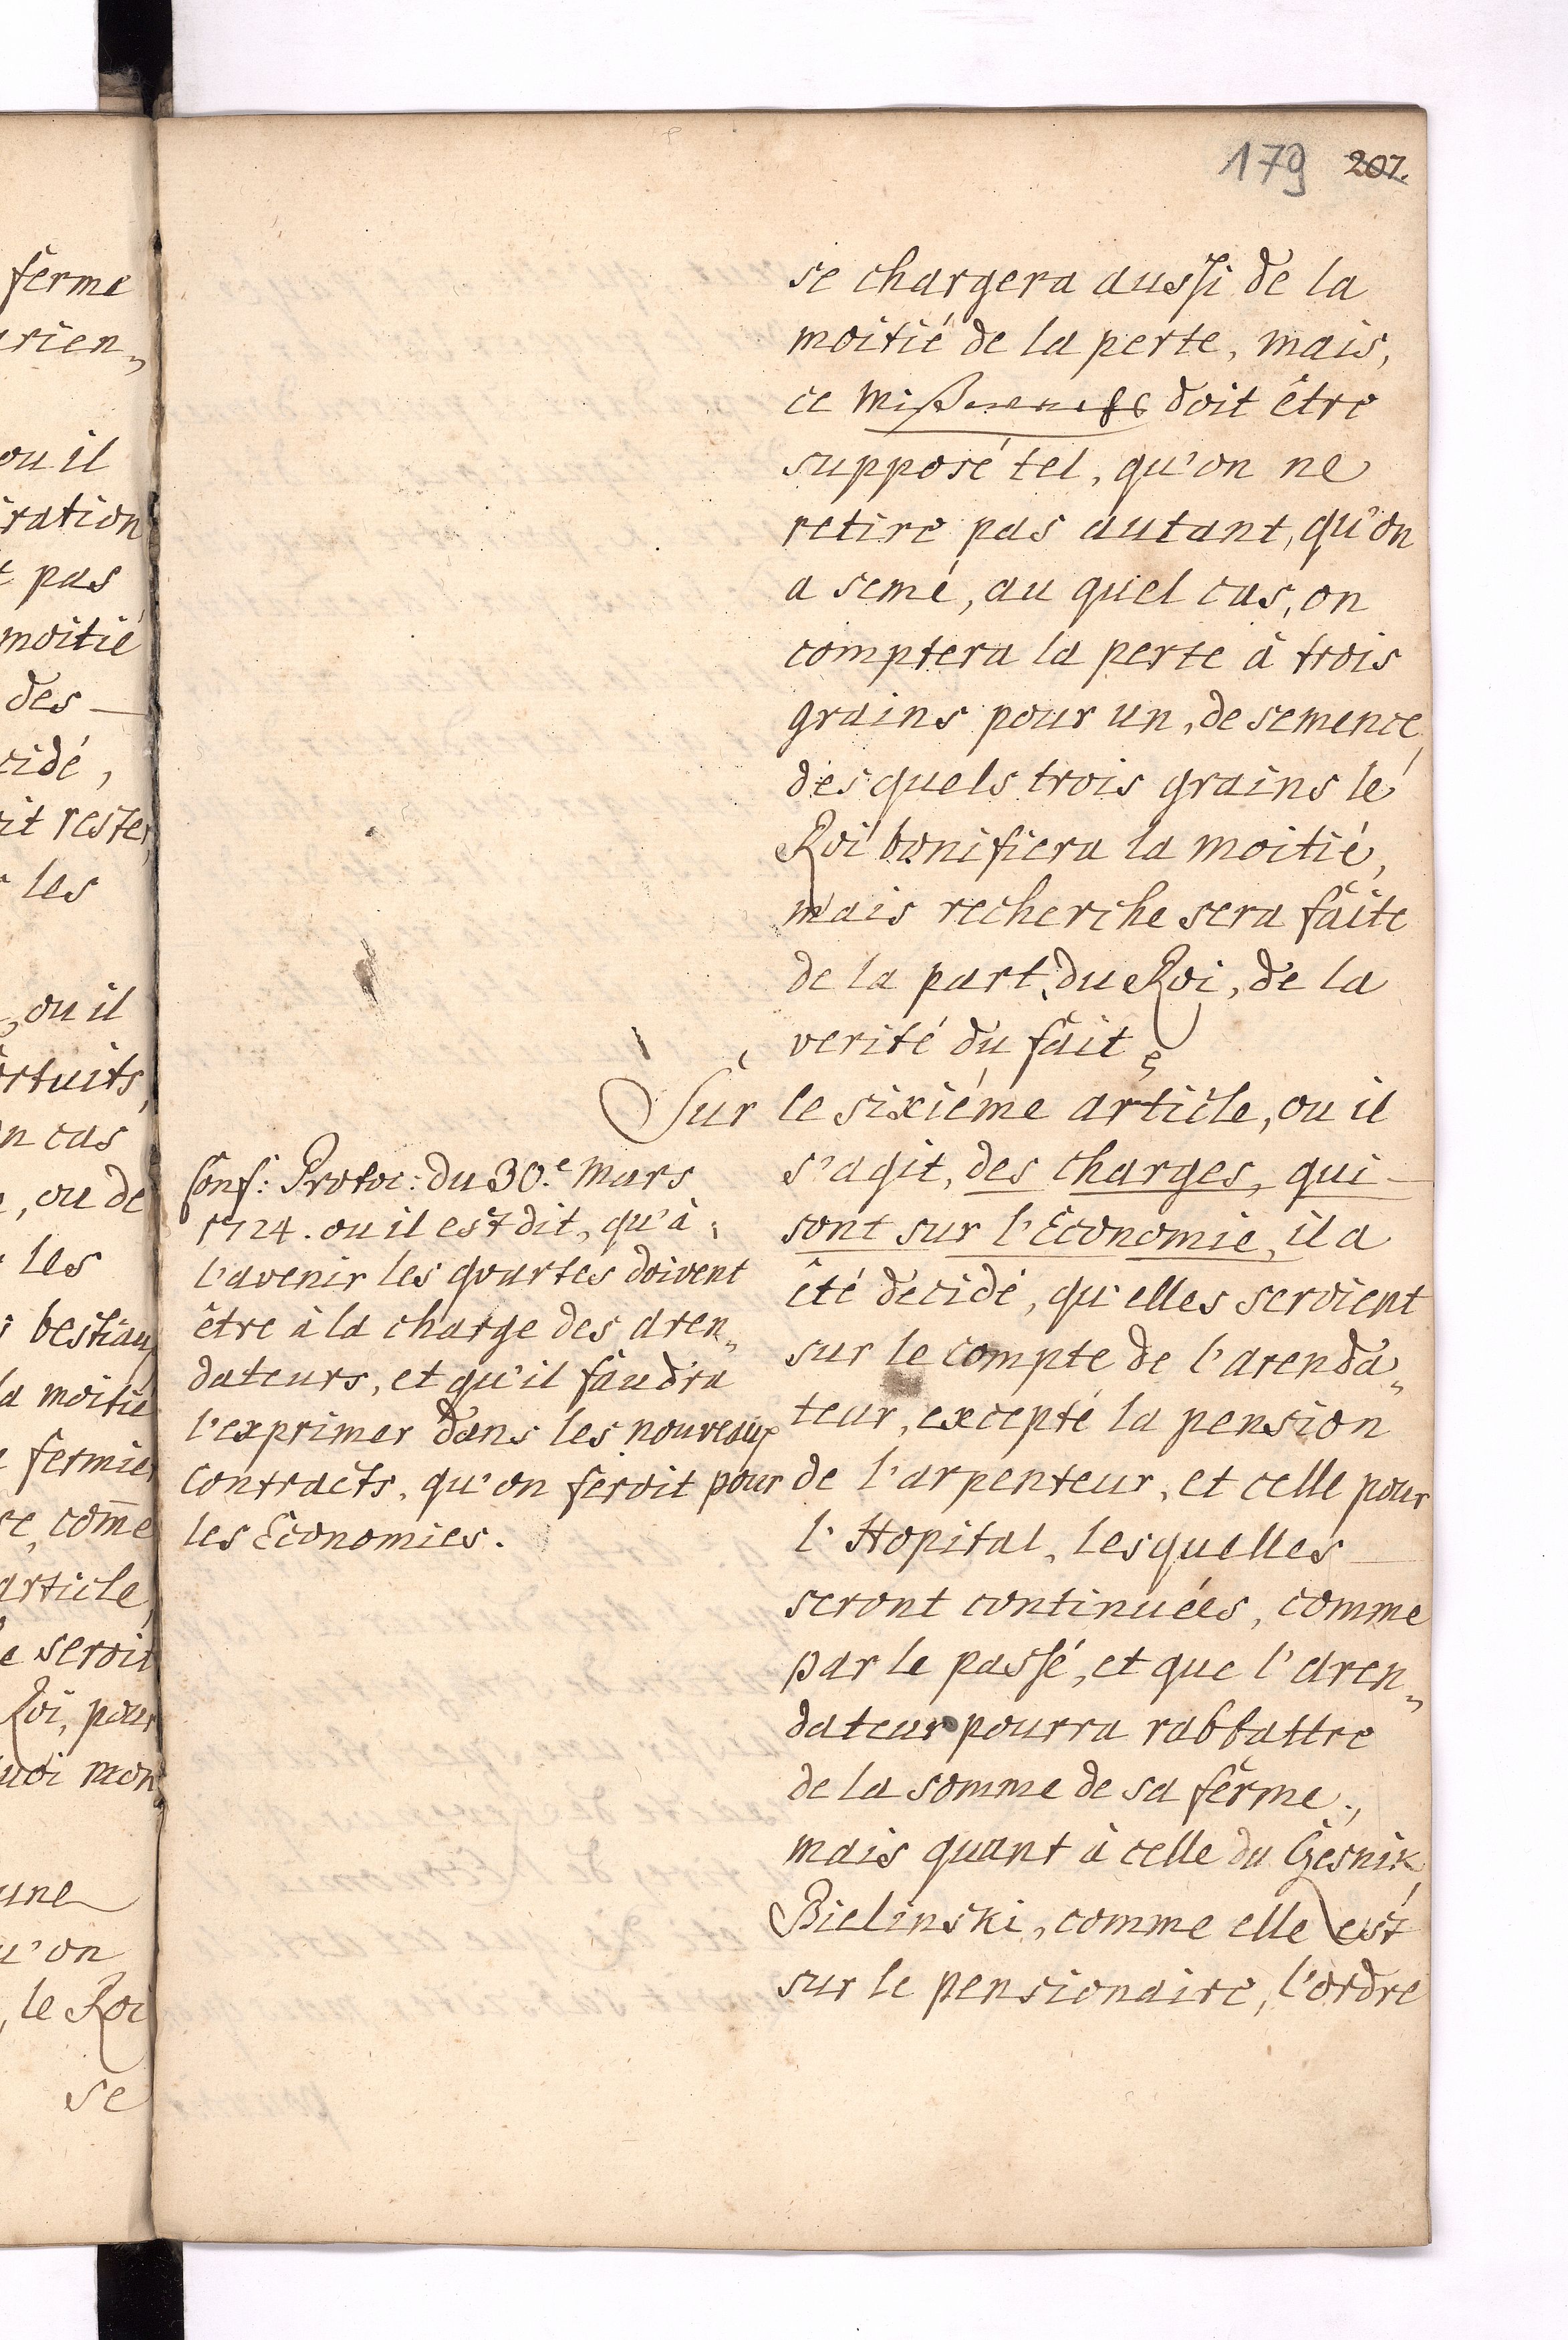 179 207.
se chargera aussi de la
moitié de la perte, mais,
ce Mißwachs doit être
supposé tel, qu'on ne
retire pas autant, qu'on
a semé, au quel cas, on
comptera la perte à trois
grains pour un, de semence,
desquels trois grains le
Roi bonifiera la moitié,
mais recherche sera faite
de la part, du Roi, de la
verité du fait
Sur le sixiéme article, ou il
s'agit, des charges, qui
sont sur l'Economie, il a
été decidé, qu'elles seroient
sur le compte de l'arenda„
teur, excepté la pension
de l'arpenteur, et celle pour
l'Hopital, lesquelles
seront continuées, comme
par le passé, et que l'aren„
dateur pourra rabbattre
de la somme de sa ferme,
mais quant à celle du Gesnik
Bielinski, comme elle est
sur le pensionaire, l'ordre
Conf: Protoc: du 30.e Mars
1724. ou il est dit, qu'à
l'avenir les quartes doivent
être à la charge des aren„
dateurs, et qu'il faudra
l'exprimer dans les nouveaux
contracts, qu'on feroit pour
les Economies.
ferme
rien„
ou il
ration
pas
moitié
des
cidé,
it rester
les
, ou il
rtuits,
n cas
, ou de
les
bestiaux
la moitié
fermier
re, com̄e
article,
e seroit
Roi, pour
uoi mon„
une
u'on
, le Roi
se